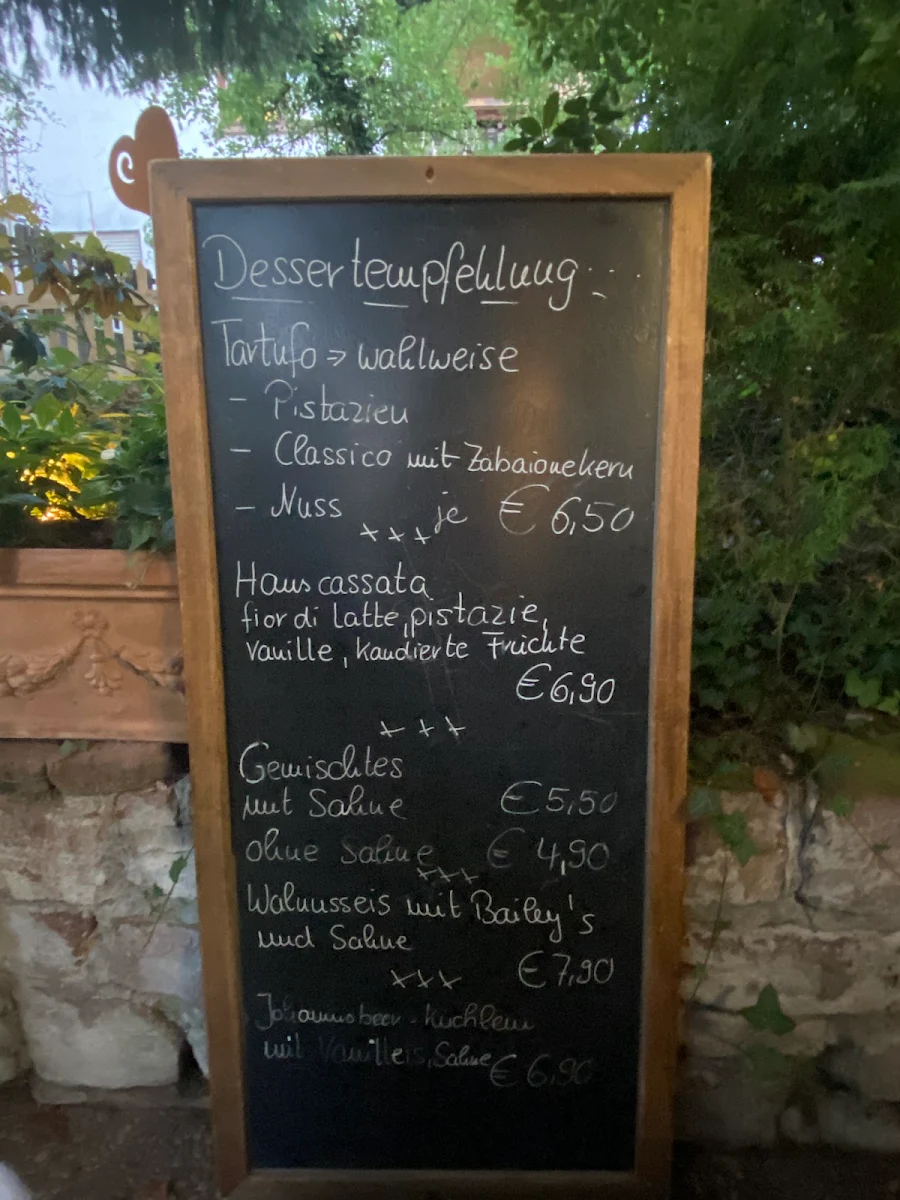 Dessertempfehlung...
Tartufo => wahlweise
- Pistazien
- Classico mit Zabaionekern
- Nuss je € 6,50
+++
Hauscassata
fior di latte, pistazie,
vanille, kandierte Früchte
€ 6,90
+++
Gemischtes
mit Sahne € 5,50
ohne Sahne € 4,90
+++
Walnusseis mit Bailey's
und Sahne
€ 7,90
xxx
Johannisbeer-Küchlein
mit Vanilleis, Sahne € 6,90